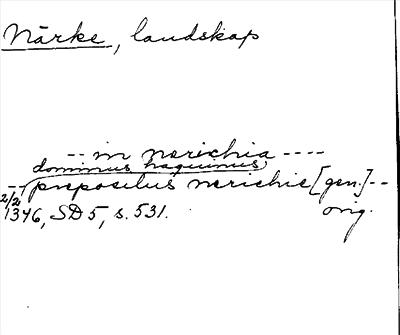 Närke, landskap
-- in nerichia ----
dominus haquinus
-- prepositus nerichie [gen.] --
2/2 1346, SD5, s. 531. orig.